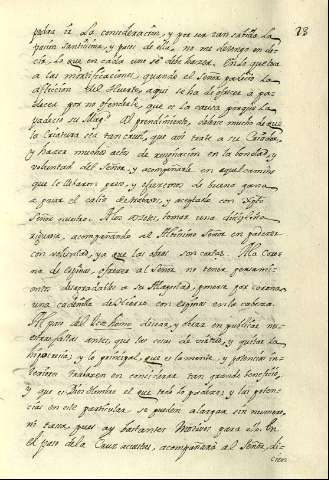 23
pedra â la consideracion, y por ser tan sabida la
Passion Santissima, y pasos de ella, no me detengo en de-
cir, lo que en cada uno se debe hazer. En lo que toca
a las mortificaciones, quando el Señor padeció la
afliccion del Huerto, aqui se ha de ofrecer á pa-
decer por no ofenderle, que es la causa porque la
padeció su Mag.d Al prendimiento, sabese mucho de que
la Criatura sea tan cruel, que assi trate a su Criador,
y hazer muchos actos de resignacion en la bondad, y
voluntad del Señor, y acompañarle en aquel camino
que le llevaron preso, y ofrecernos de buena gana
a pasar el calis de trabajos, y aceptarlo con Xpto
Señor nuestro. A los azotes, tomar una disciplina
rigurosa, acompañando al Altissimo Señor en padecer
con voluntad, ya que las obras son cortas. A la Coro-
na de espinas, ofrecer al Señor no tener pensamien-
tos desagradables a su Magestad, ponerse por corona
una cadenilla de hierro con espinas en la cabeza.
Al paso del Ecce homo desear, y obrar en publicar nu-
estras faltas antes, que las cosas de virtud, y quitar la
hipocresia; y lo principal, que es la mente, y potencias in-
teriores trabajen en considerar tan grande beneficio,
y que es Dios Hombre el que todo lo padece; y las poten-
cias en este particular se pueden alargar sin numero,
ni tasa, pues ay bastantes Motivos para ello. En
el paso de la Cruz acuestas, acompañará al Señor, di-
cien